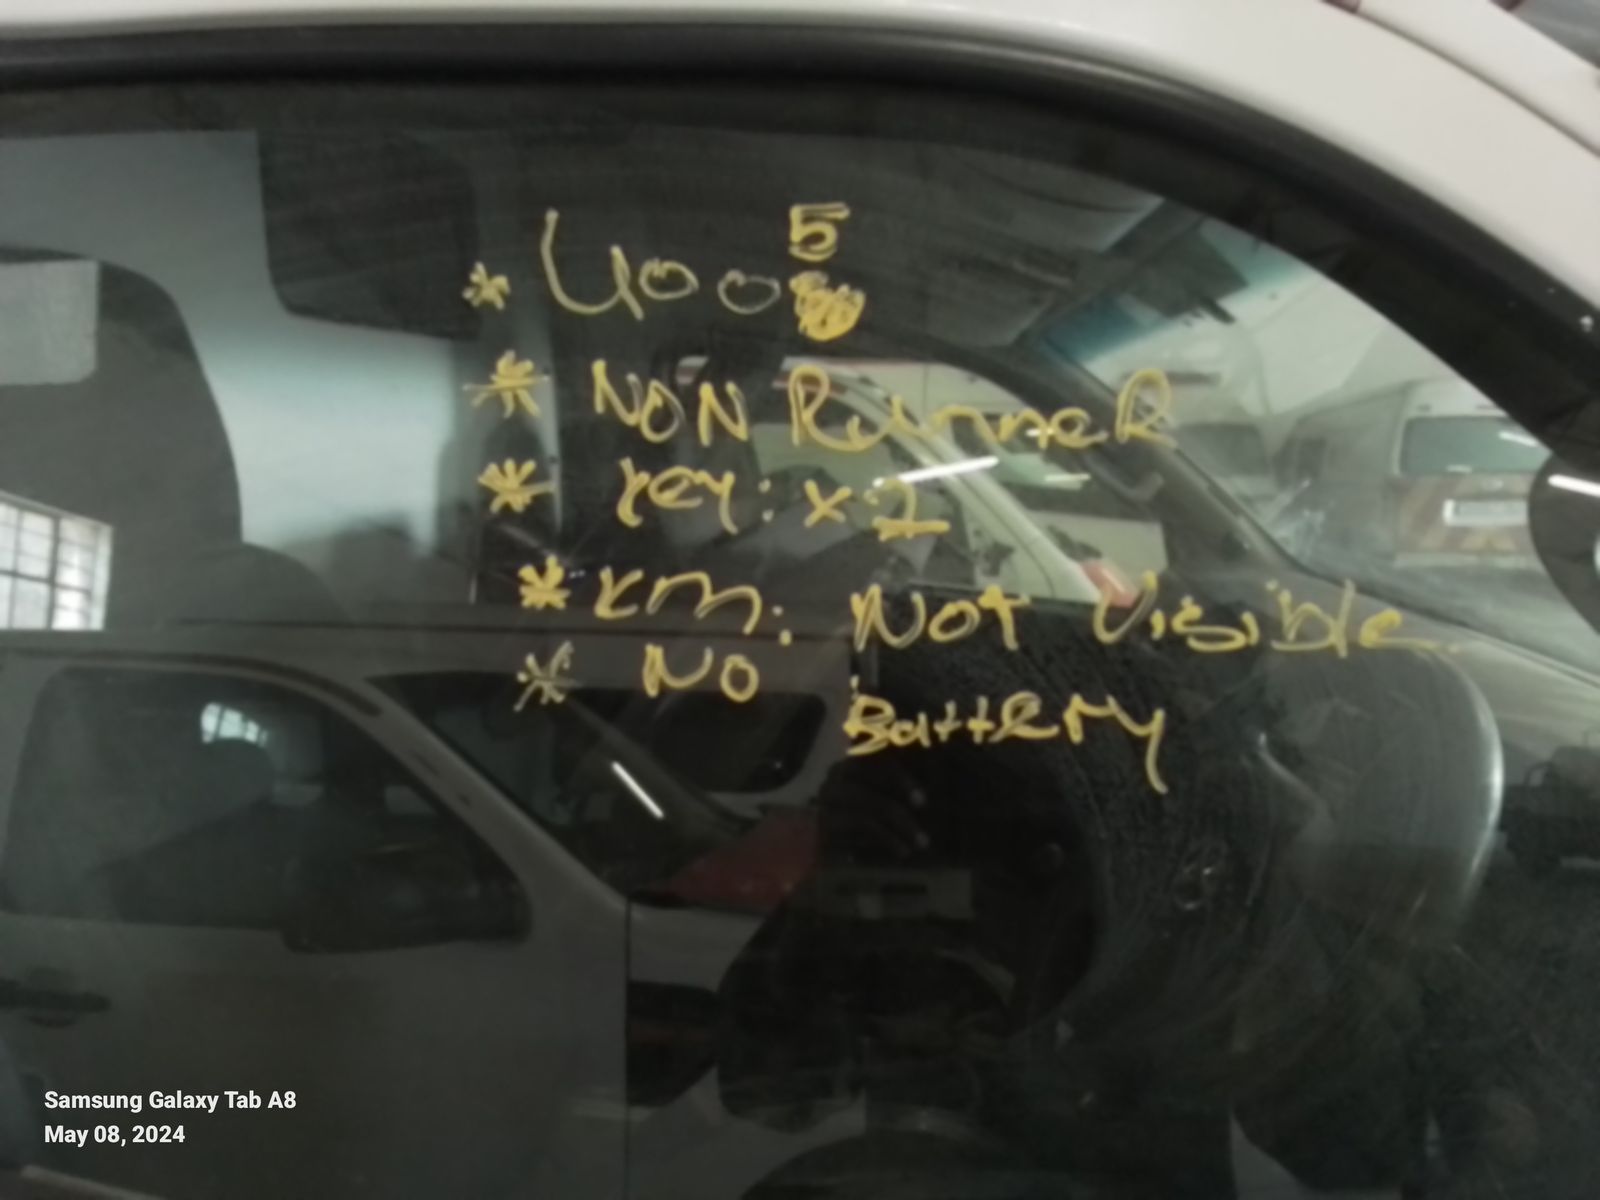 * 4005
* NON RunneR
* key: x 2
* km: Not Visible.
* No Battery
Samsung Galaxy Tab A8
May 08, 2024